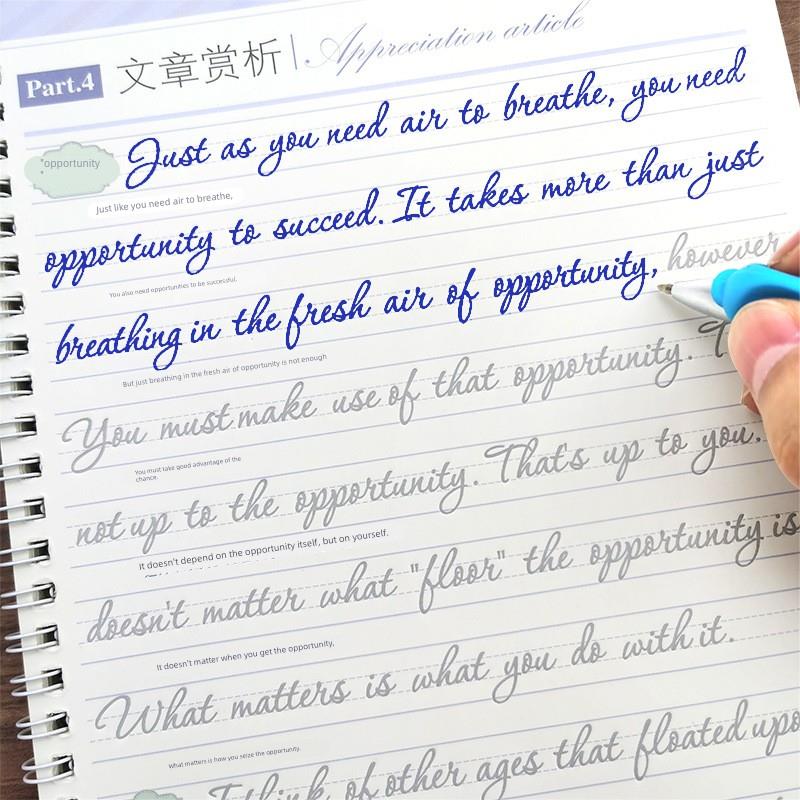 Part.4 文章赏析 Appreciation article
opportunity
Just as you need air to breathe, you need
Just like you need air to breathe,
opportunity to succeed. It takes more than just
You also need opportunities to be successful.
breathing in the fresh air of opportunity, however
But just breathing in the fresh air of opportunity is not enough
You must make use of that opportunity.
You must take good advantage of the
chance.
not up to the opportunity. That's up to you.
It doesn't depend on the opportunity itself, but on yourself.
doesn't matter what "floor" the opportunity is
It doesn't matter when you get the opportunity,
What matters is what you do with it.
What matters is how you seize the opportunity.
I think of other ages that floated upo